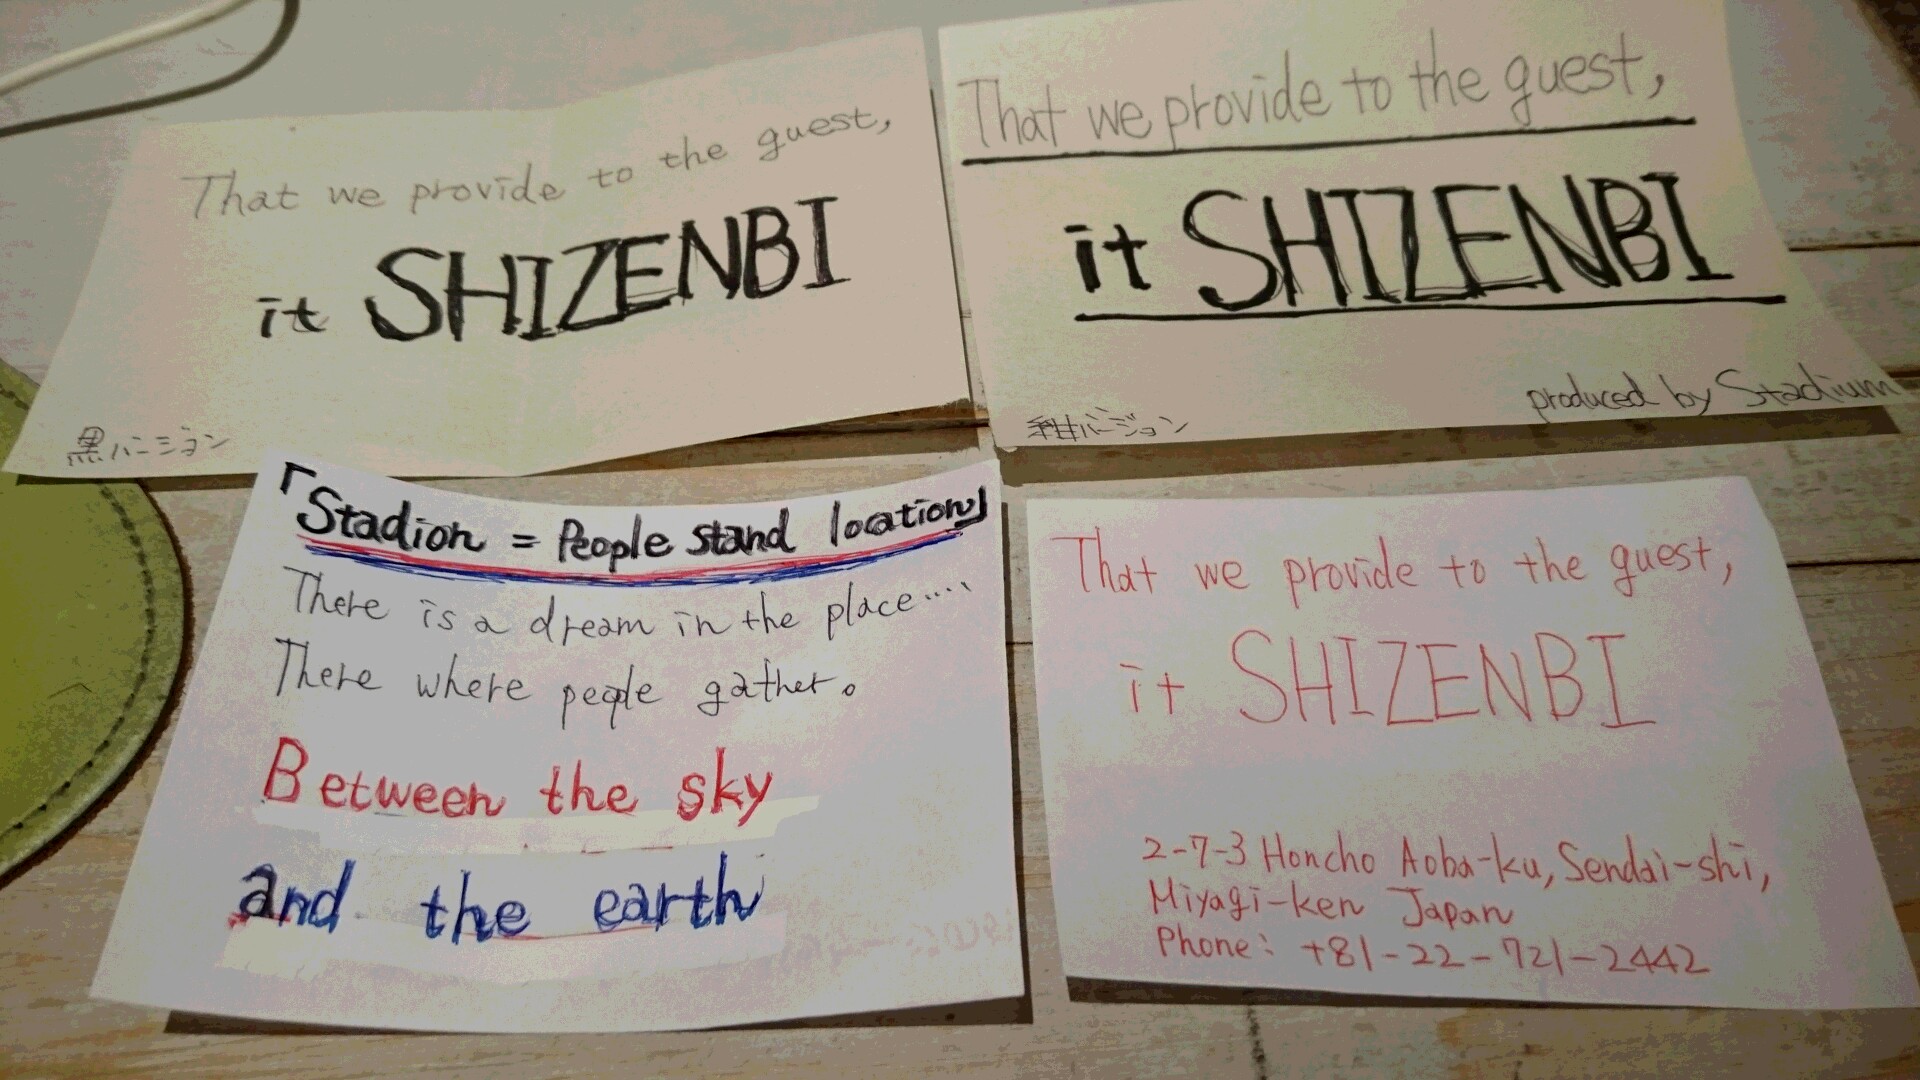 That we provide to the guest,
it SHIZENBI
黒バージョン
That we provide to the guest,
it SHIZENBI
produced by Stadium
紺バージョン
「Stadion = People stand location」
There is a dream in the place....
There where people gather。
Between the sky
and the earth
That we provide to the guest,
it SHIZENBI
2-7-3 Honcho Aoba-ku, Sendai-shi,
Miyagi-ken Japan
Phone: +81-22-721-2442